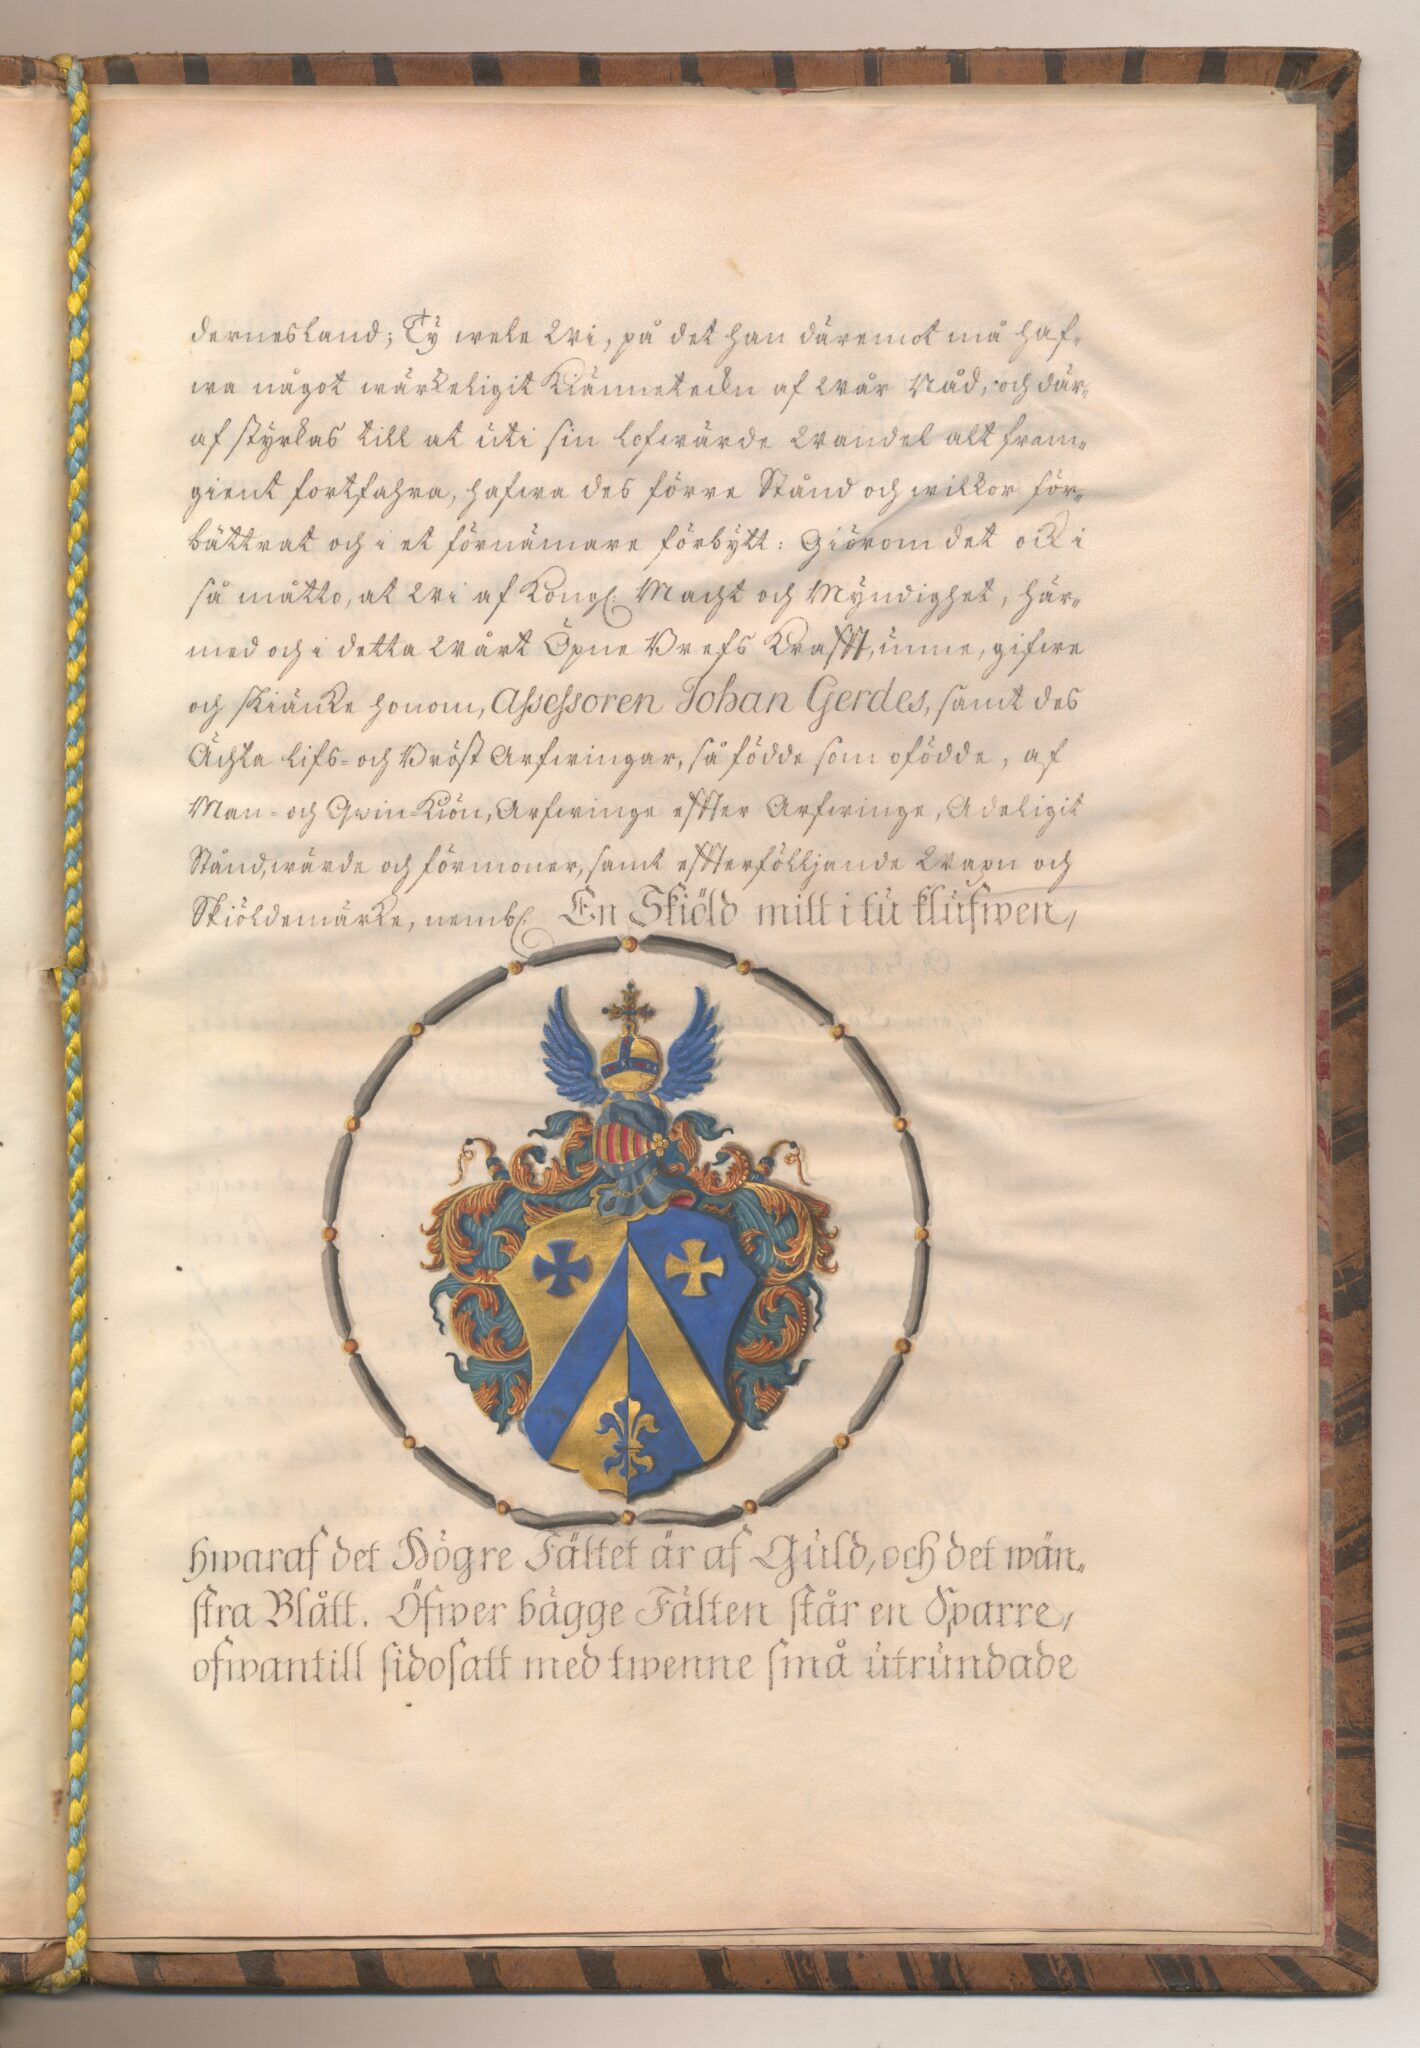 dernesland; Ty wele Wi, på det han däremot må haf-
wa något wärkeligit Kiänneteckn af Wår Nåd, och där-
af styrkas till at uti sin lofwärde Wandel alt fram-
gient fortfahra, hafwa des förre Stånd och wilkor för-
bättrat och i et förnämare förbytt: Giörom det ock i
så måtto, at Wi af Kongl. Macht och Myndighet, här-
med och i detta Wårt Öpne Brefs Krafft, unne, gifwe
och skiänke honom, Assessoren Johan Gerdes, samt des
Ächta Lifs- och Bröst Arfwingar, så födde som ofödde, af
Man- och Qwin-Kiön, Arfwinge effter Arfwinge, Adeligit
Stånd, wärde och förmoner, samt effterfölljande Wapn och
Skiöldemärke, nembl. En Skiöld mitt i tu klufwen,
hwaraf det Högre Fältet är af Guld, och det wän-
stra Blått. Öfwer bägge Fälten står en Sparre,
ofwantill sidosatt med twenne små utrundade